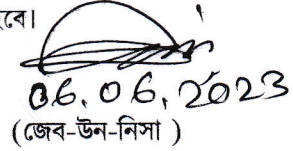 হবে।
06.06.2023
(জেব-উন-নিসা )